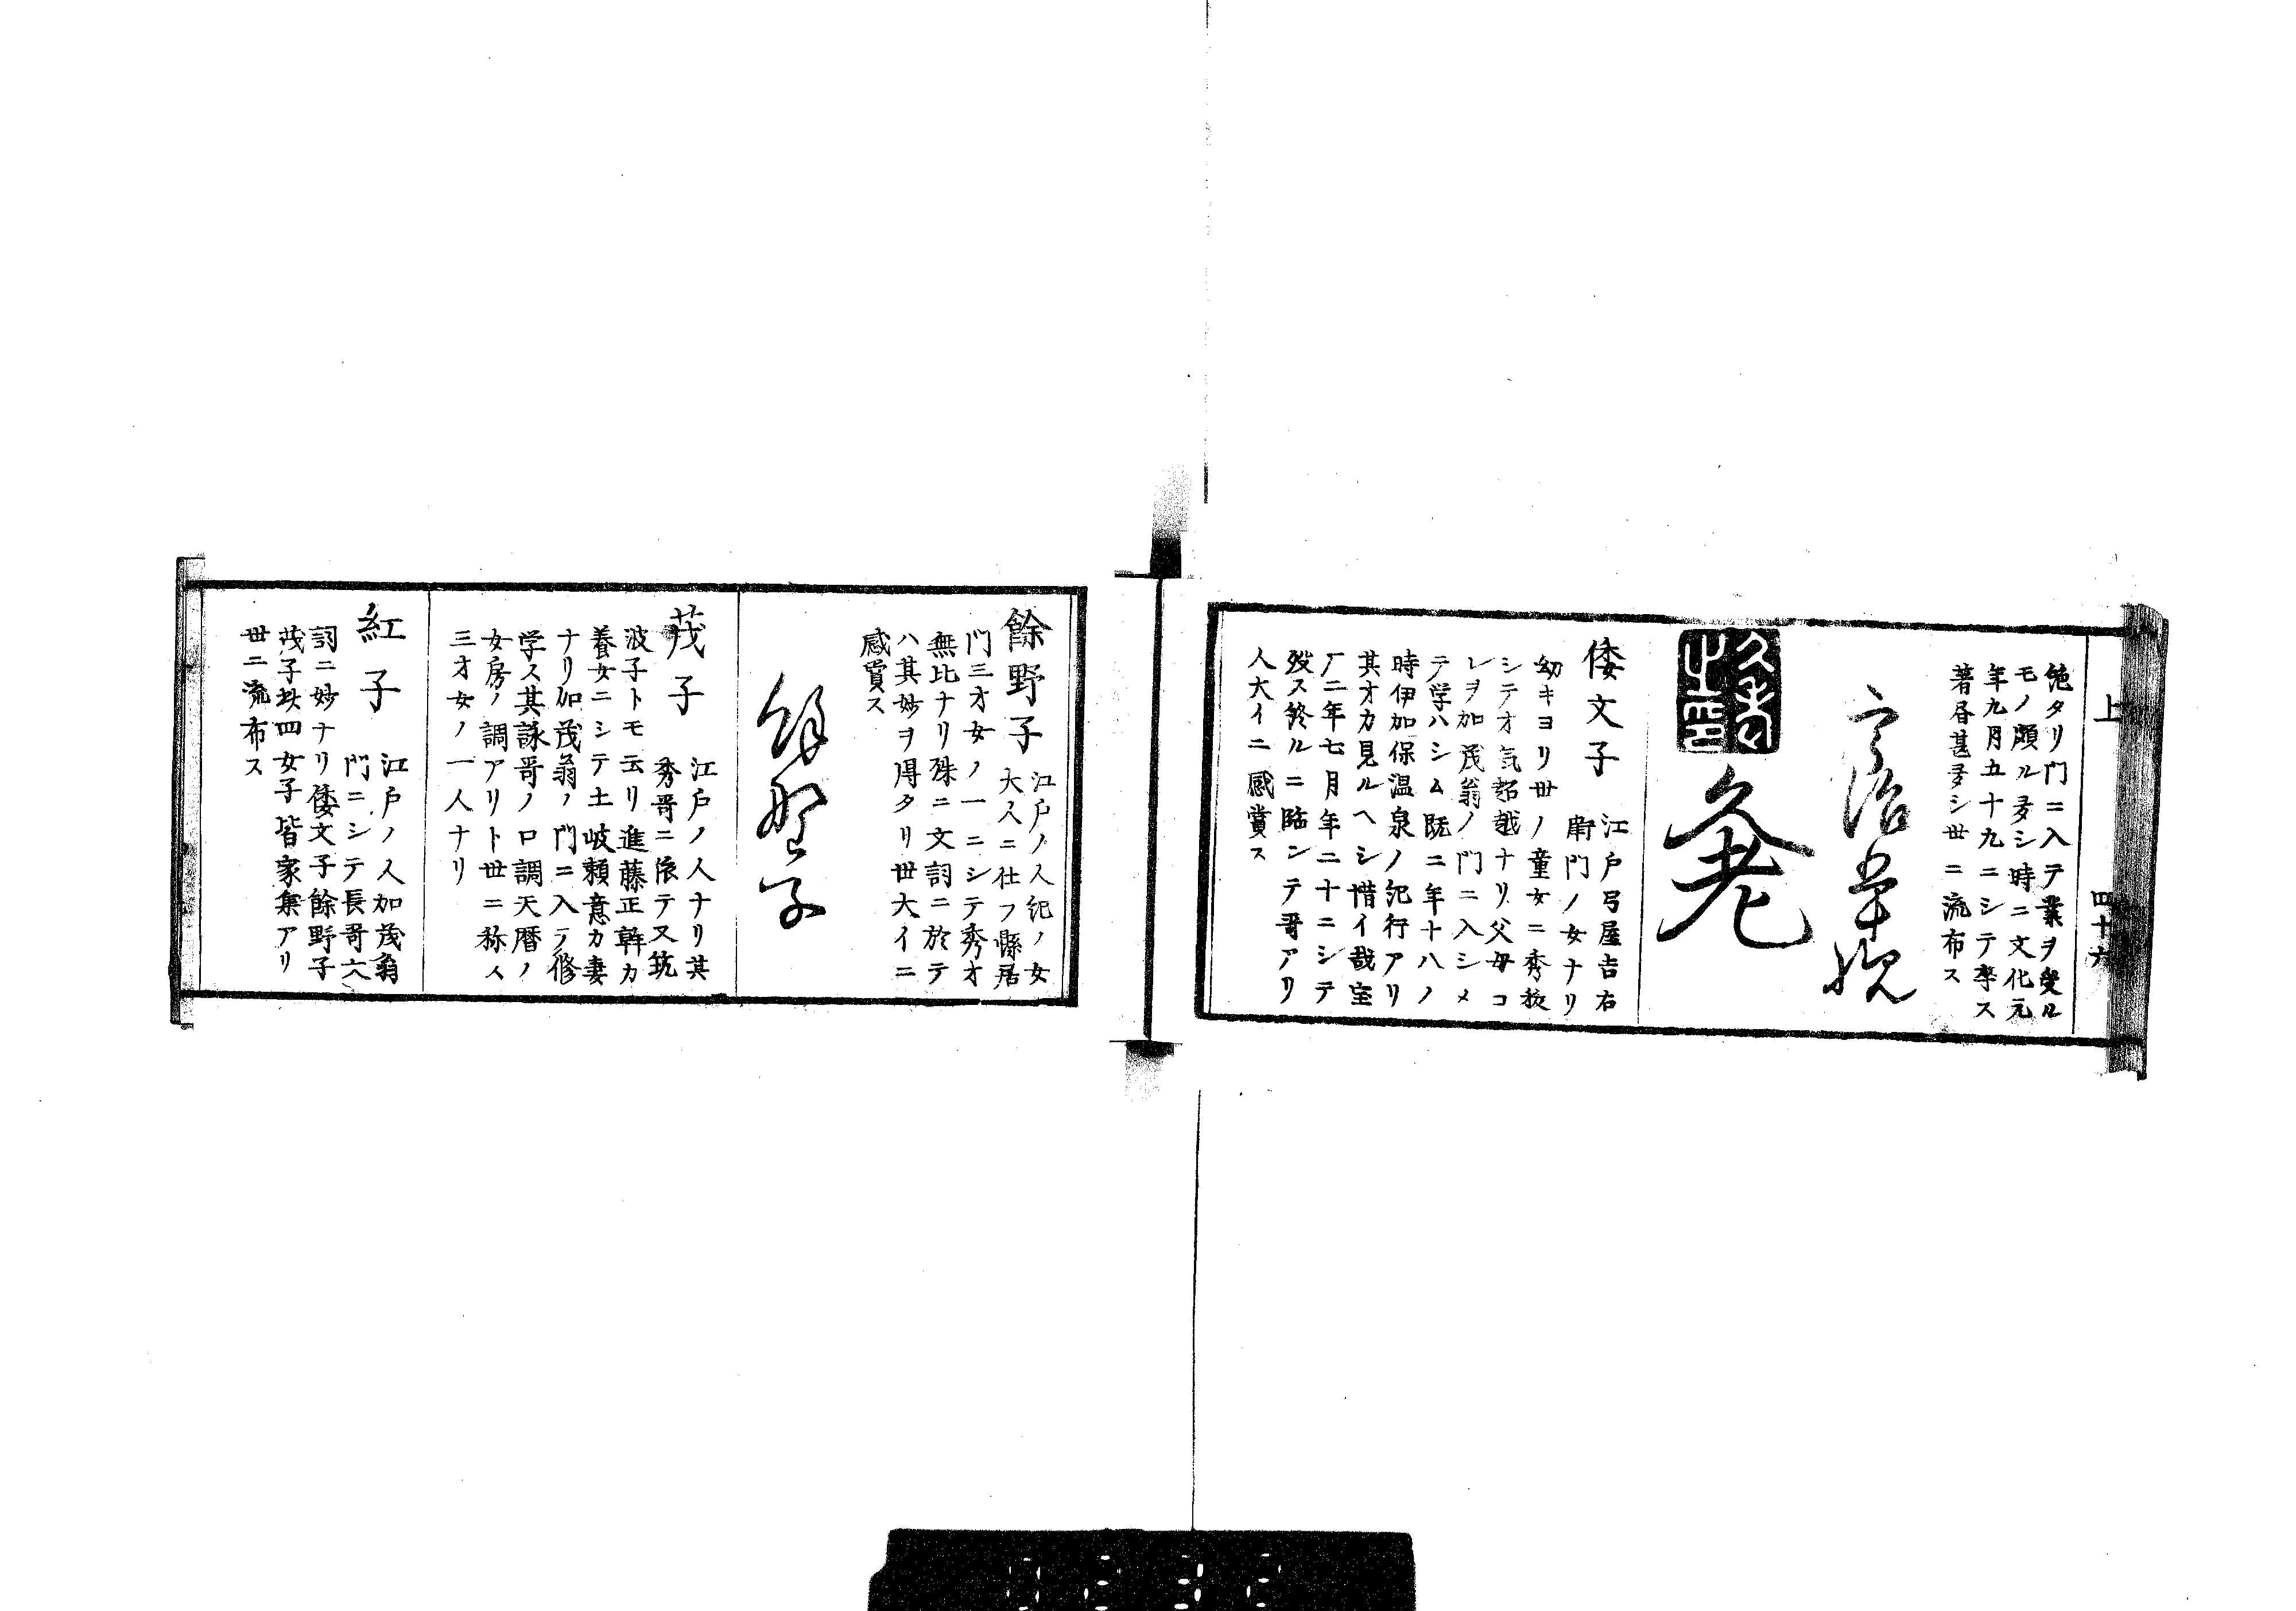 上 四十六
絶タリ門ニ入テ業ヲ受ル
モノ頗ル多シ時ニ文化元
年九月五十九ニシテ卒ス
著 甚多シ世ニ流布ス
宇治
久老
倭文子
江戸弓屋吉右
衛門ノ女ナリ
幼キヨリ世ノ童女ニ秀抜
シテ才気超越ナリ父母コ
レヲ加茂翁ノ門ニ入シメ
テ学ハシム既ニ年十八ノ
時伊加保温泉ノ紀行アリ
其才力見ルヘシ惜イ哉宝
厂二年七月年二十ニシテ
歿ス終ルニ臨ンテ哥アリ
人大イニ感賞ス
餘野子
江戸ノ人紀ノ女
大人ニ仕フ縣居
門三才女ノ一ニシテ秀才
無比ナリ殊ニ文詞ニ於テ
ハ其妙ヲ得タリ世大イニ
感賞ス
餘野子
茂子
江戸ノ人ナリ其
秀哥ニ依テ又筑
波子トモ云リ進藤正幹カ
養女ニシテ土岐頼意カ妻
ナリ加茂翁ノ門ニ入テ修
学ス其詠哥ノ口調天暦ノ
女房ノ調アリト世ニ称ス
三才女ノ一人ナリ
紅子
江戸ノ人加茂翁
門ニシテ長哥文
詞ニ妙ナリ倭文子餘野子
茂子 四女子皆家集アリ
世ニ流布ス